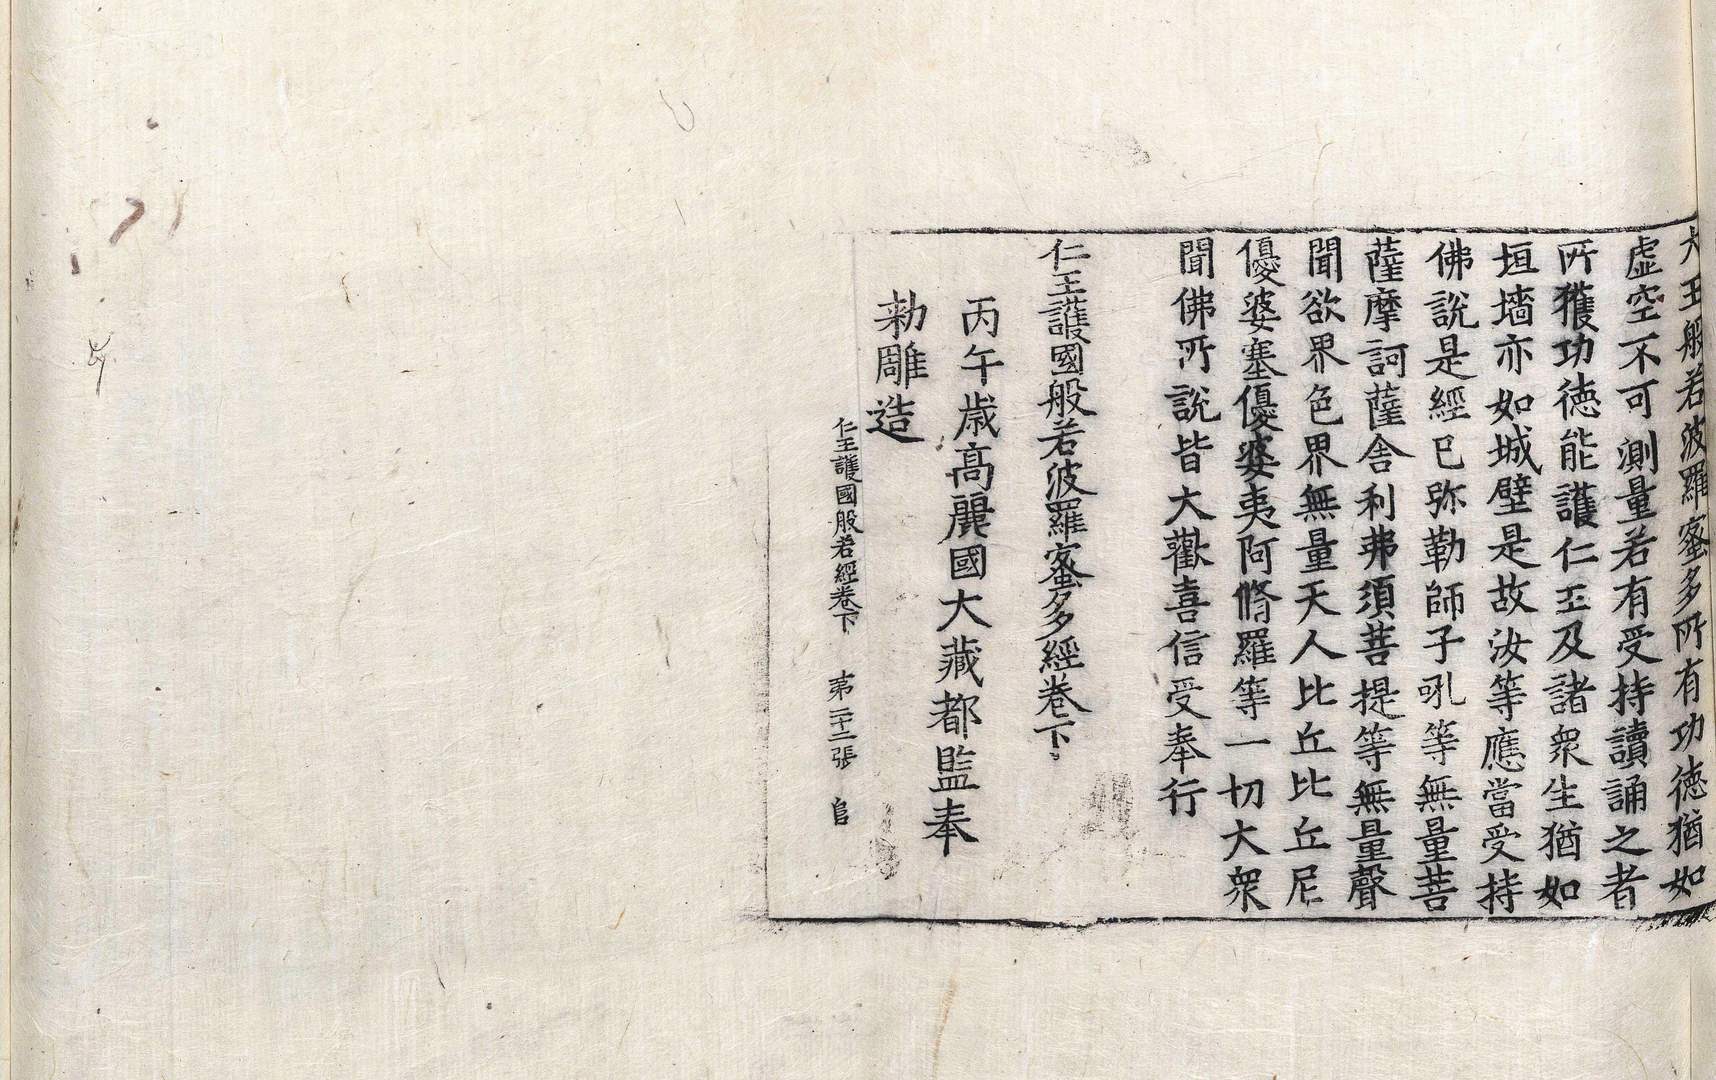 大王般若波羅蜜多所有功德猶如
虛空不可測量若有受持讀誦之者
所獲功德能護仁王及諸衆生猶如
垣墻亦如城壁是故汝等應當受持
佛說是經已弥勒師子吼等無量菩
薩摩訶薩舍利弗須菩提等無量聲
聞欲界色界無量天人比丘比丘尼
優婆塞優婆夷阿脩羅等一切大衆
聞佛所說皆大歡喜信受奉行
仁王護國般若波羅蜜多經卷下
丙午歲高麗國大藏都監奉
勑雕造
仁王護國般若經卷下 第二十二張